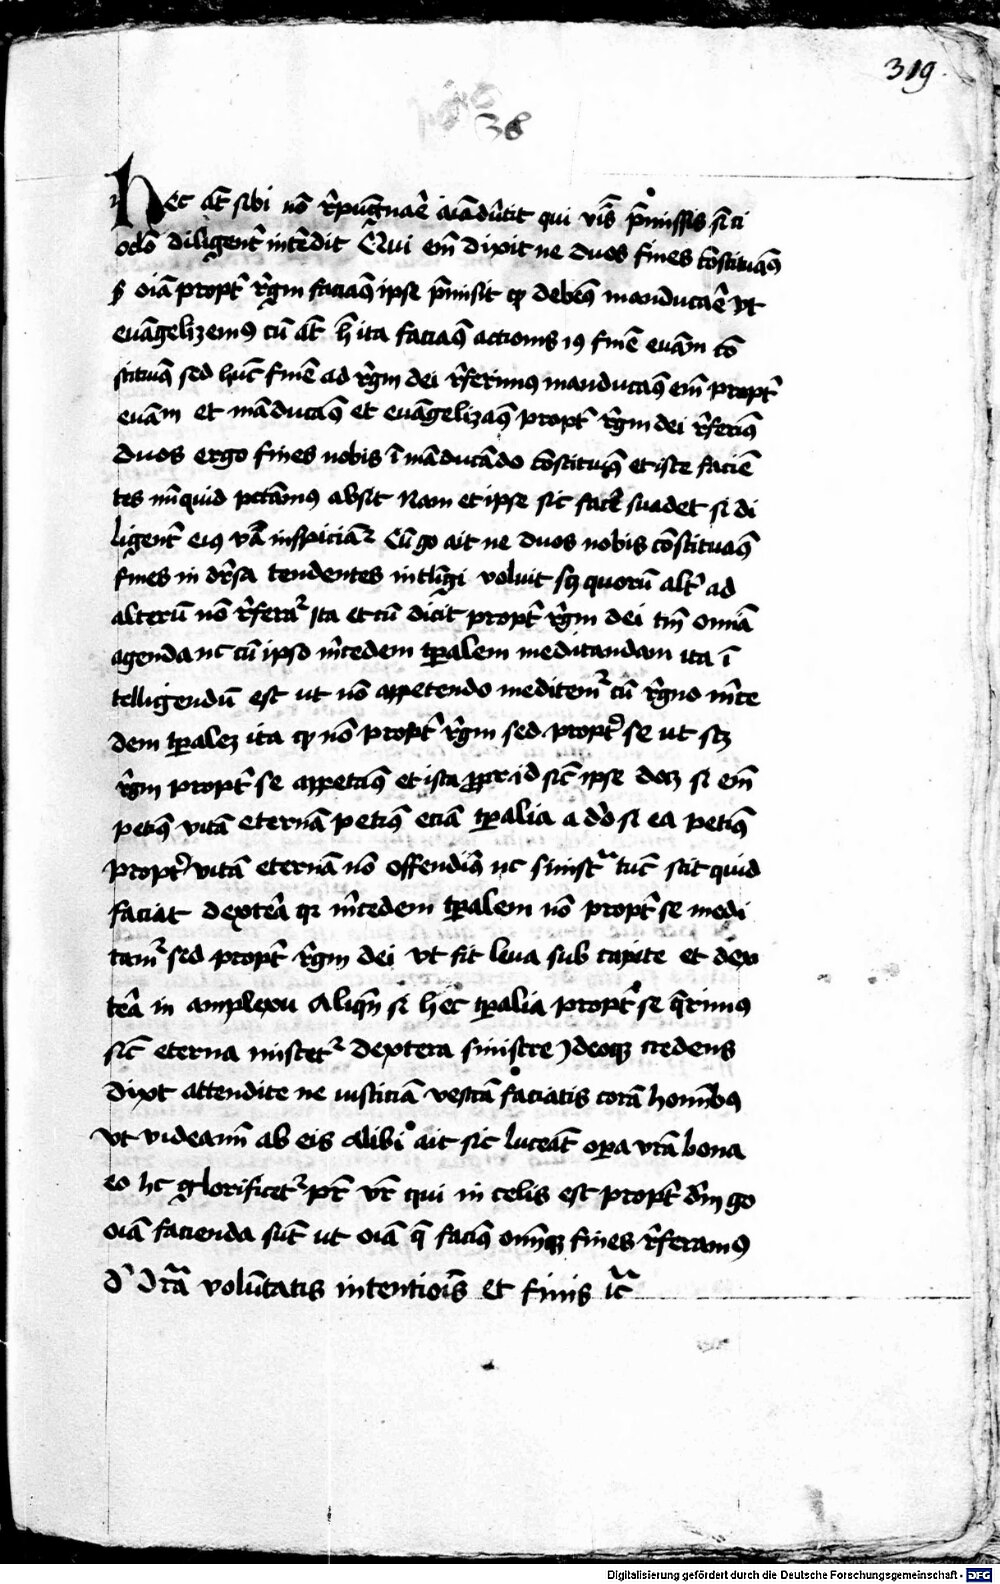 319.
36
Hec at̄ sibi nō r̄pugnar̄e aīaduītit qui v̄bis p̄missis sc̄i
odo diligent̄ intēdit Qui em̄ dixit ne duos fines cōstituam9
s oīa propt̄ r̄gm faciam9 ipse p̄misit qp debem9 manducar̄e vt
euāgelizem9 cū at̄ h̄ ita faciam9 actionis i9 finē euām cō
stituim9 sed hūc finē ad r̄gm dei r̄ferim9 manducam9 em̄ propt̄
euām et māducam9 et euāgelizam9 propt̄ r̄gm dei r̄feram9
Duos ergo fines nobis ī māducādo cōstituim9 et iste faciē
tes nūquid pctām9 absit Nam et ipse sic facē suadet si di
ligent̄ ei9 v̄ba inspiciam9 Cū go ait ne duos nobis cōstituam9
fines in dr̄sa tendentes intligi voluit scz quorū alt̄ ad
alterū nō r̄ferat᷑ Ita et cū dicit propt̄ r̄gm dei tm̄ omīa
agenda nc cū ipso m̄cedem tp̄alem meditandam ita ī
telligendū est ut nō appetendo meditem᷑ cū r̄gno m̄ce
dem tp̄alez ita qp nō propt̄ r̄gm sed propt̄ se ut scz
r̄gm propt̄ se appetam9 et ista ppt id sic̄ ipse docz si em̄
petim9 vitā eternā petim9 eciā tp̄alia a dō si ea petim9
propt̄ vitā eternā nō offendim9 nc sinistr̄a tūc scit quid
faciat dexter̄a qr m̄cedem tp̄alem nō propt̄ se medi
tam᷑ sed propt̄ r̄gm dei vt sit leua sub capite et dex
ter̄a in amplexu Alioqn̄ si hec tp̄alia propt̄ se q̄rimus
sic̄ eterna miscet᷑ dextera sinistre Ideoqz credens
dixt attendite ne iusticiā vestrā faciatis corā homīb9
vt videamī ab eis Alibi ait sic luceāt opa vr̄a bona
eo hc glorificet᷑ pr̄ vr̄ qui in celis est propt̄ dm̄ go
oīa facienda sūt ut oīa q̄ facim9 omn̄qz fines r̄feramus
voluntatis intentiōis et finis
Digitalisierung gefördert durch die Deutsche Forschungsgemeinschaft - DFG